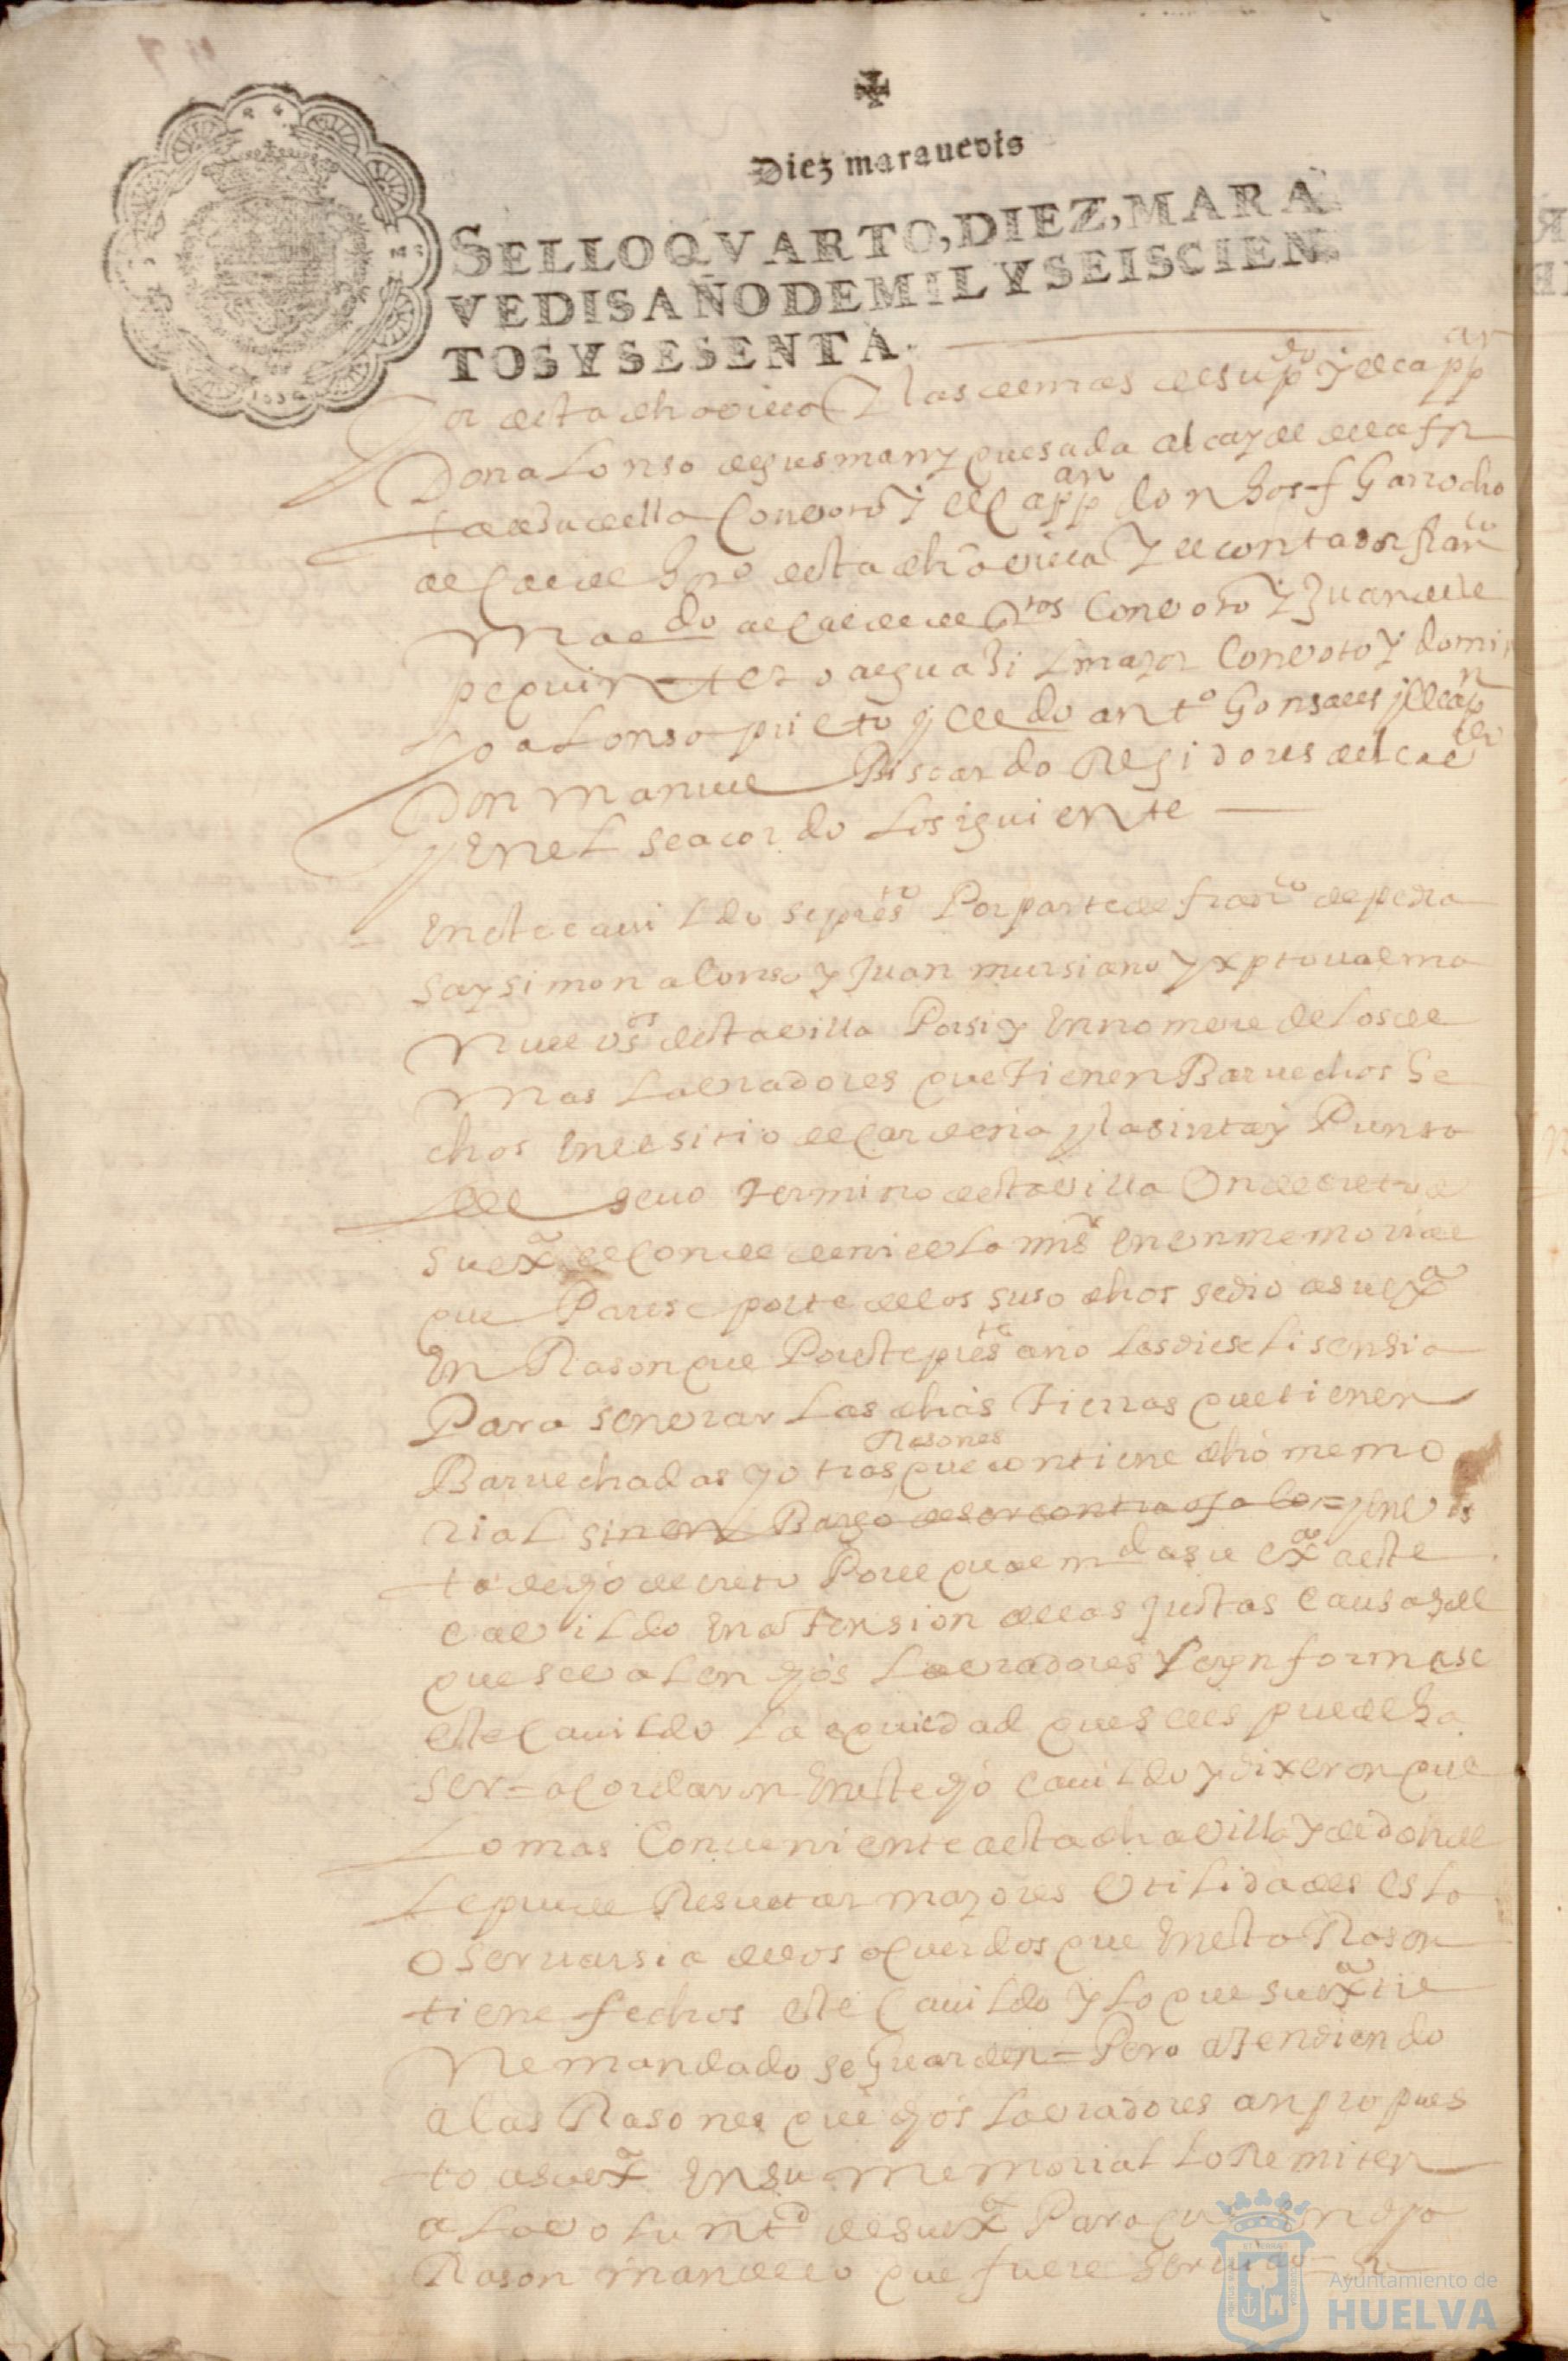 Diez maravedis
SELLO QVARTO, DIEZ, MARA
VEDIS AÑO DE MIL Y SEISCIEN
TOS Y SESENTA.
or desta dha villa Y las demas de su pdo y el cap an
Don alonso de gusman y quesada alcayde de la fr
tadesa della Con voto Y el Cap an don Josef Garrocho
alCalde hordo desta dha villa Y el contador franco
Maldo alCalde de Con voto Y Juan de
pequinetero alguasil mayor Con voto Y domin
go alonso prieto y el ldo anto Gonsales y el cap n
Don manuel Piscardo Regidores del cau
y En el se acordo lo siguiente
En este cauildo se presto Por parte de franco de pedra
sa y simon alonso y Juan mursiano y xptoual ma
nuel vs desta villa Por si y En nombre de los de
mas labradores que tienen Baruechos he
chos En el sitio de Cardeña y la sinta y Punta
del sevo termino desta villa Un decreto de
su exa el Conde de niebla mi sr en Un memorial
que Por parte de los suso dhos se dio a su exa
En Rason que Por este preste año les diese lisensia
Para senbrar las dhas tierras que tienen
Baruechadas y otras Rasones que contiene dho memo
rial sin enBargo de ser contra oja los = y en vis
ta de dho decreto Por el qual mda su exa a este
cabildo En atension de las Justas causas de
que se valen dhos labradores Y ynformase
este Cauildo la equidad que se les puede ha
ser = aCordaron En este dho cauildo y dixeron que
lo mas Conueniente a esta dha villa Y de donde
le puede Resultar mayores Utilidades es la
oseruansia de los aCuerdos que En esta Rason
tiene fechos este Cauildo Y lo que su exa tie
ne mandado se Guarden = Pero atendiendo
a las Rasones que dhos labradores an propues
to a su exa En su memorial lo Remiten
a la voluntd de su exa Para que en dha
Rason mande lo que fuere seruido
Ayuntamiento de
HUELVA